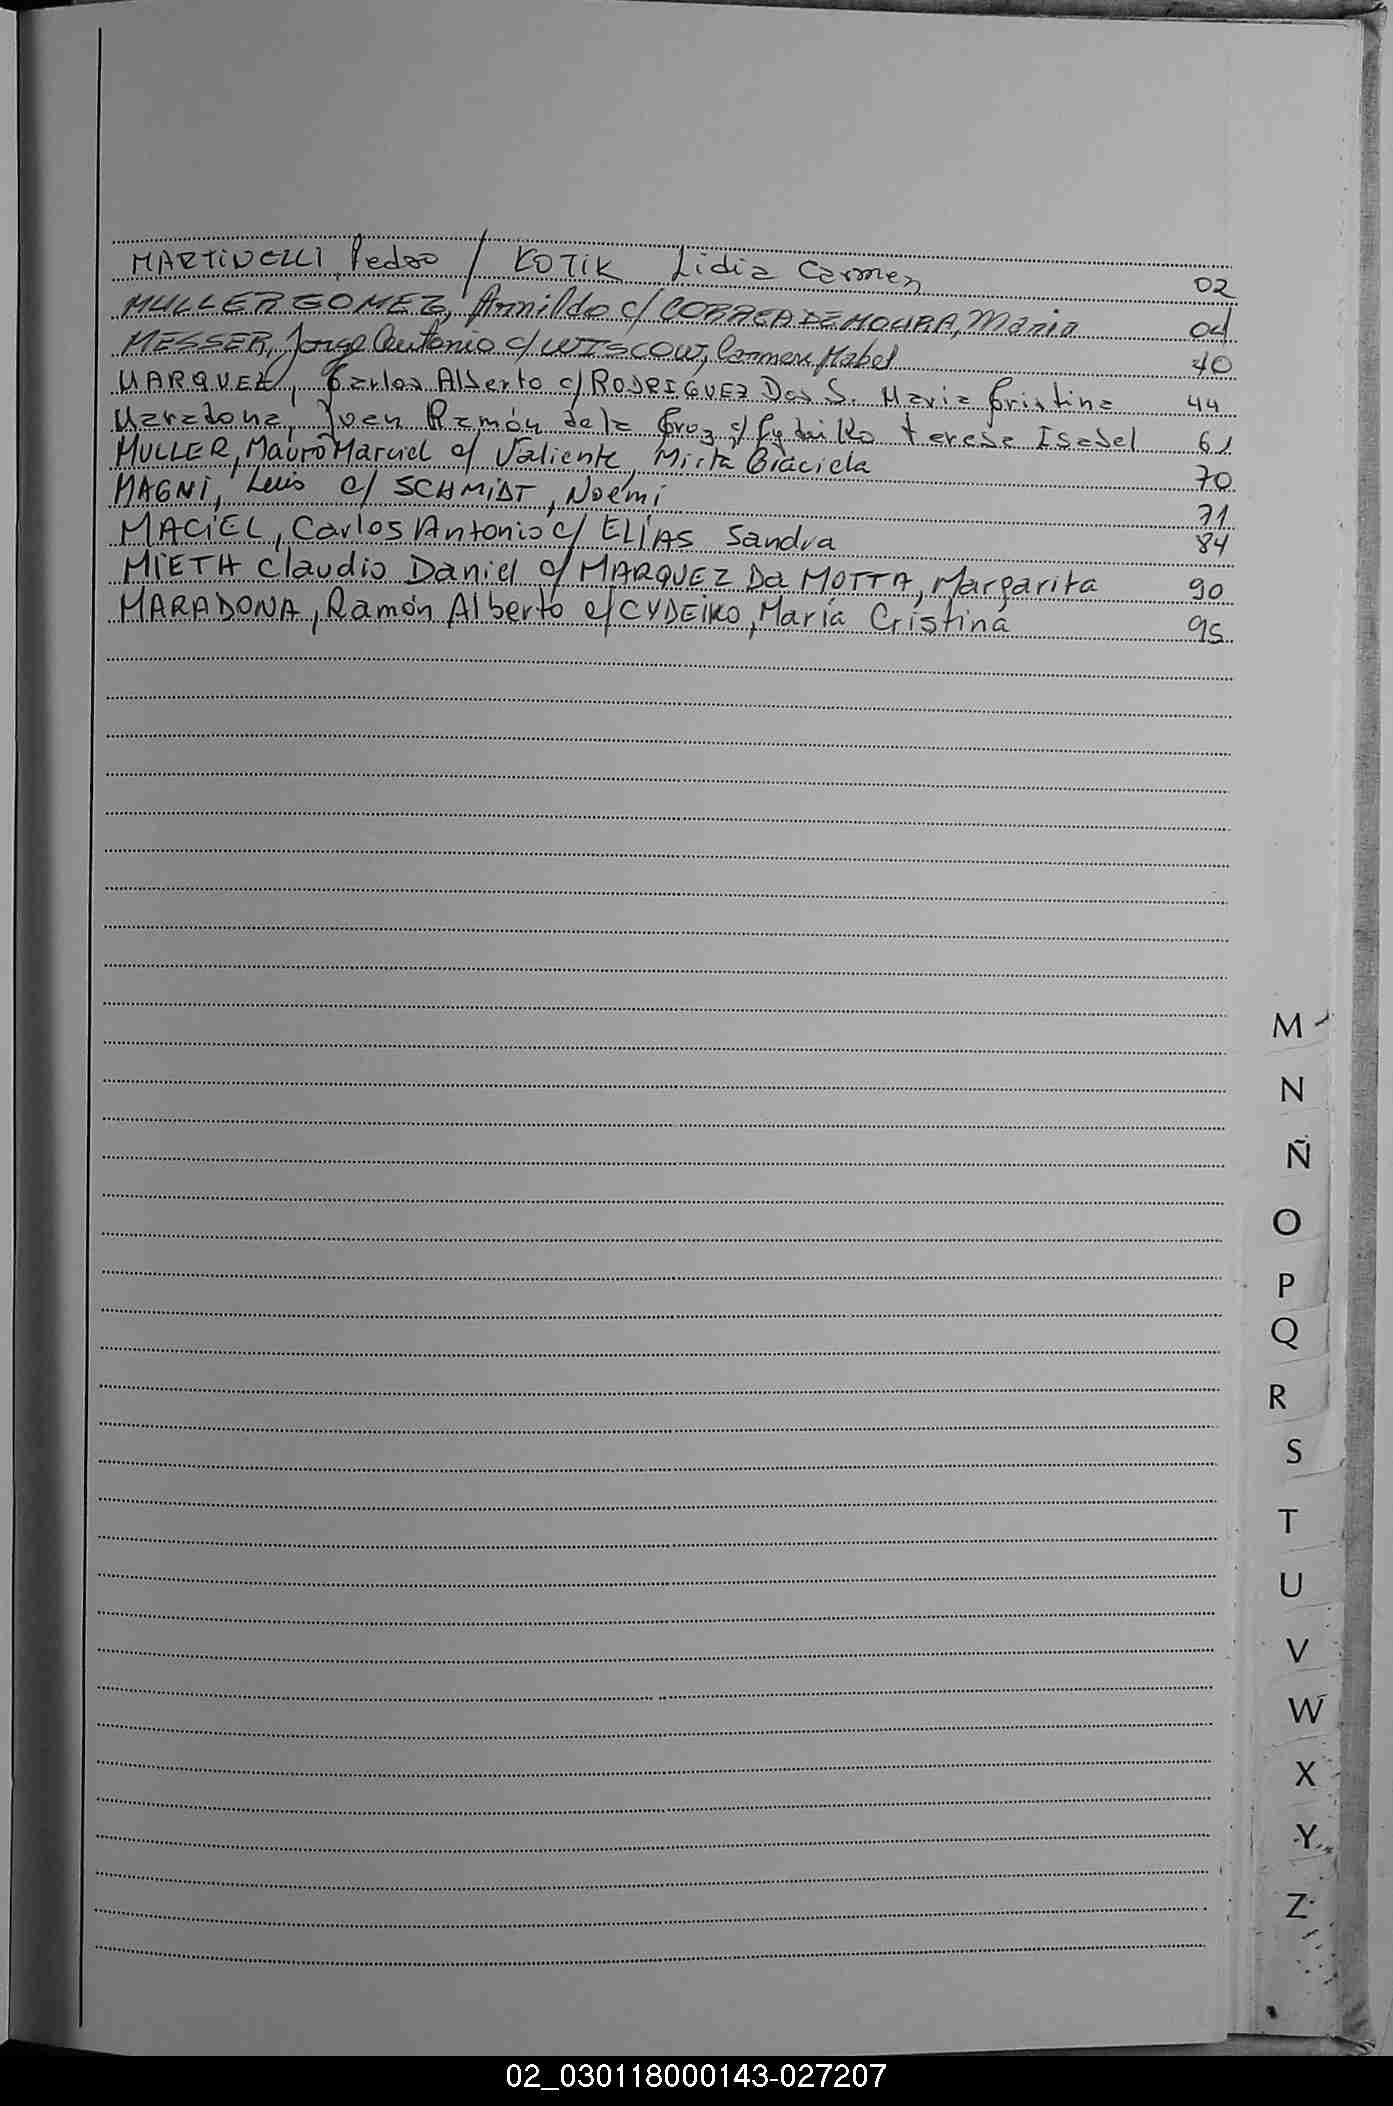 MARTINELLI, Pedro / KOTIK Lidia Carmen 02
MULLER GOMEZ, Arnildo c/ CORREA DE MOURA, Maria 04
MESSER, Jorge Antonio c/ WISCOW, Carmen Mabel 40
MARQUEZ, Carlos Alberto c/ RODRIGUEZ Dos S. Maria Cristina 44
Maradona, Juan Ramón de la Cruz c/ Terese Isabel 61
MULLER, Mauro Marciel c/ Valiente, Mirta Graciela 70
MAGNI, Luis c/ SCHMIDT, Noemí 71
MACIEL, Carlos Antonio c/ ELÍAS Sandra 84
MIETH Claudio Daniel c/ MARQUEZ Da MOTTA, Margarita 90
MARADONA, Ramón Alberto c/ CYDEIKO, María Cristina 95
M
N
Ñ
O
P
Q
R
S
T
U
V
W
X
Y
Z
02_030118000143-027207